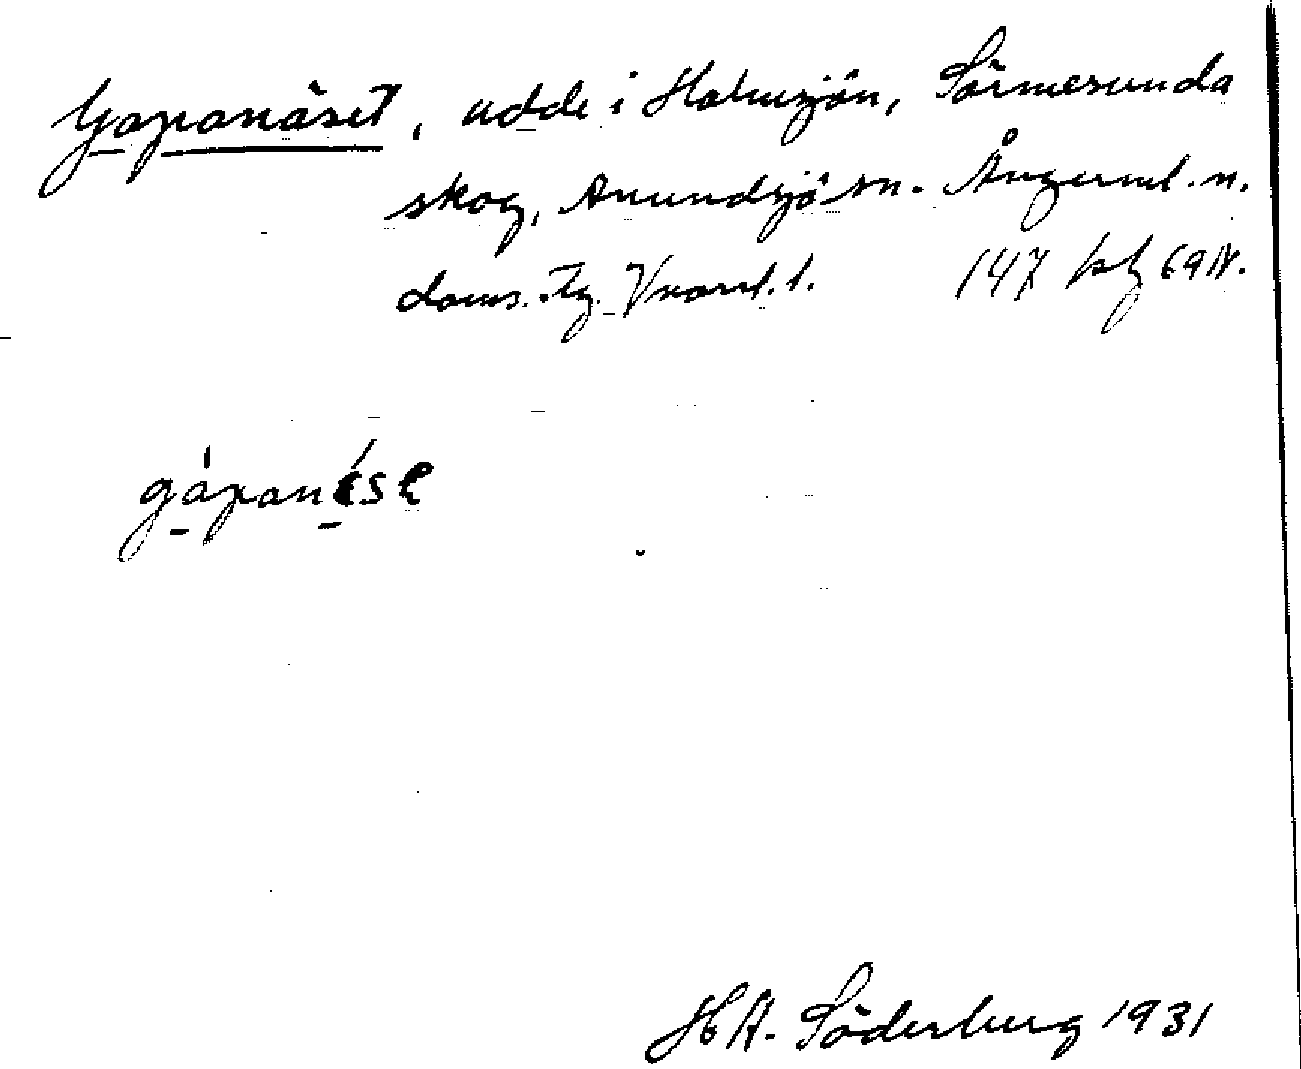 Gapanäset, udde i Holmsjön, Sörmesunda
skog, Anundsjö sn. Ångerml. n.
doms. tg. Vnorrl. l. 147 bl 69 N.
gápanése
H A. Söderberg 1931